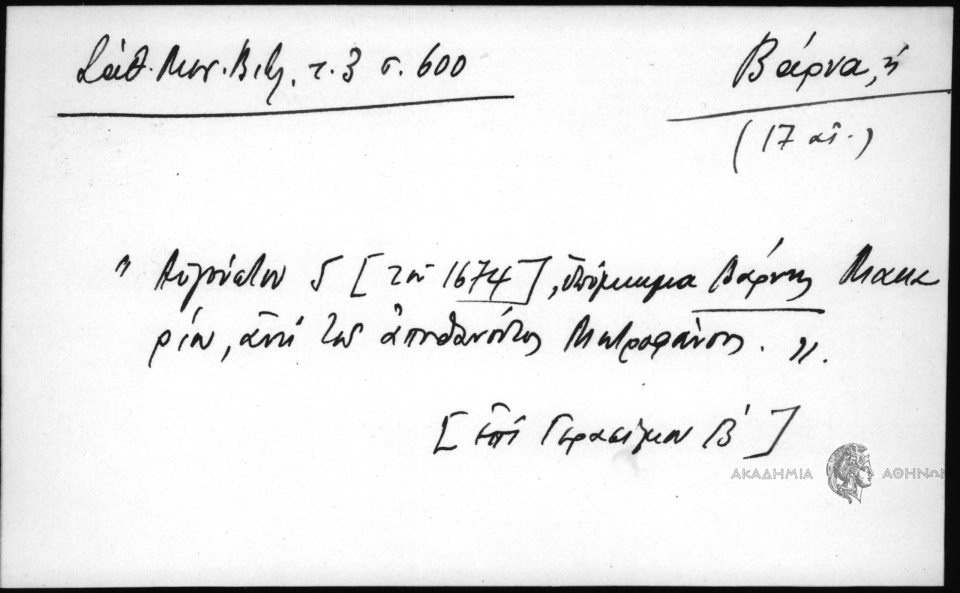 Σάθ. Μεσ. Βιβλ. τ. 3 σ. 600
Βάρνα, ἡ
(17 αἰ.)
" Αὐγούστου 5 [τοῦ 1674], ὑπόμνημα Βάρνης Μακα
ρίου, ἀντὶ τοῦ ἀποθανόντος Μητροφάνους. ".
[ἐπὶ Γερασίμου Β']
ΑΚΑΔΗΜΙΑ ΑΘΗΝΩΝ